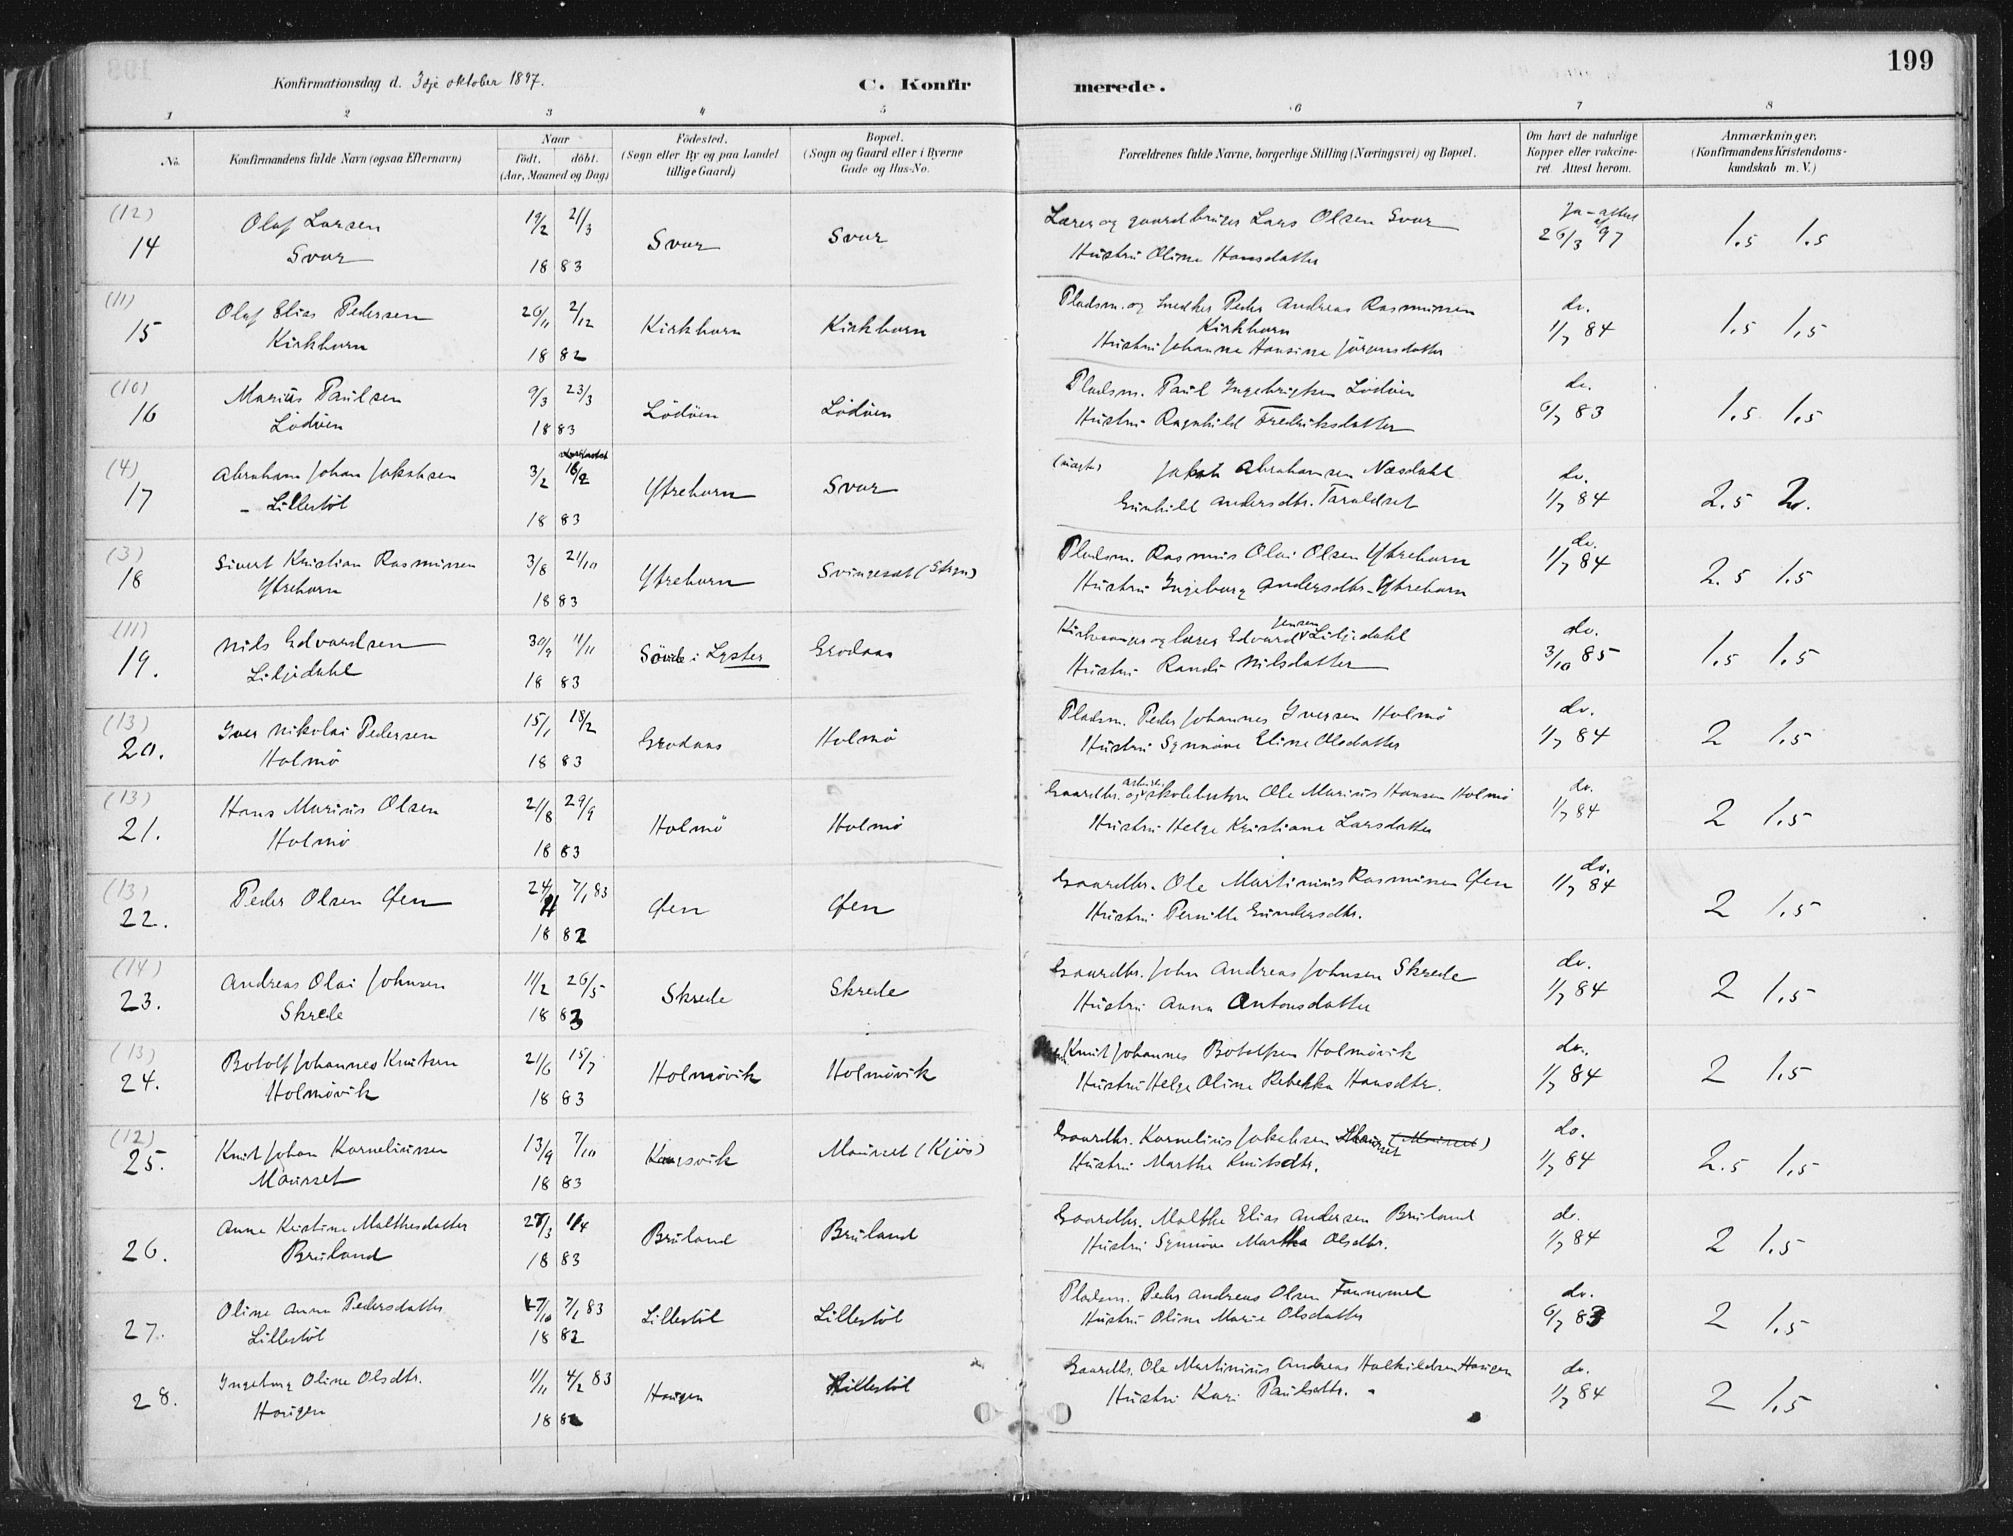 199
Konfirmationsdag d. 3dje oktober 1897.
C. Konfirmerede.
1 2 3 4 5 6 7 8
No. Konfirmandens fulde Navn (ogsaa Efternavn) Naar födt. döbt. (Aar, Maaned og Dag) Födested. (Sogn eller By og paa Landet tillige Gaard) Bopæl. (Sogn og Gaard eller i Byerne Gade og Hus-No. Forældrenes fulde Navne, borgerlige Stilling (Næringsvei) og Bopæl. Om havt de naturlige Kopper eller vakcineret. Attest herom. Anmærkninger. (Konfirmandens Kristendomskundskab m. V.)
(12) Olaf Larsen 19/2 21/3 Lærer og gaardbruger Lars Olsen Svor Ja - attest af
14 Svor 1883 Svor Svor Hustru Oline Hansdatter 26/3 97 1.5 1.5
(11) Olaf Elias Pedersen 26/11 2/12 Pladsm. og Snedker Peder Andreas Rasmussen do.
15 Kirkhorn 1882 Kirkhorn Kirkhorn Kirkhorn 1/7 84 1.5 1.5
Hustru Johanne Hansine Jörgensdatter
(10) Marius Paulsen 9/3 23/3 Pladsm. Paul Ingebrigtsen Lödöen do.
16 Lödöen 1883 Lödöen Lödöen Hustru Ragnhild Fredriksdatter 6/7 83 1.5 1.5
(4) Abraham Johan Jakobsen 3/2 16/2 Jakob Abrahamsen Næsdahl do.
17 - Lillestöl 1883 Ytrehorn Svor Gunhild Andersdtr. Taraldset 1/7 84 2.5 2.
(3) Sivert Kristian Rasmussen 3/8 21/10 Pladsm. Rasmus Olai Olsen Ytrehorn do.
18 Ytrehorn 1883 Ytrehorn Svingeset (Stryn) Hustru Ingeborg Andersdtr. Ytrehorn 1/7 84 2.5 1.5
(11) Nils Edvardsen 30/9 11/11 Kirkesanger og lærer Edvard Jensen Liljedahl do.
19. Liljedahl 1883 Sörde i Lyster Grodaas Hustru Randi Nilsdatter 3/10 85 1.5 1.5
(13) Iver Nikolai Pedersen 15/1 18/2 Pladsm. Peder Johannes Iversen Holmö do.
20. Holmö 1883 Grodaas Holmö Hustru Synnöve Eline Olsdatter 1/7 84 2 1.5
(13) Hans Marius Olsen 21/8 29/9 Gaardbr. og skolebestyrer Ole Marius Hansen Holmö do.
21. Holmö 1883 Holmö Holmö Hustru Helge Kristiane Larsdatter 1/7 84 2 1.5
(13) Peder Olsen Öen 24/ 7/1 83 Gaardbr. Ole Martinius Rasmussen Öen do.
22. 1882 Öen Öen Hustru Pernille Gundersdtr. 1/7 84 2 1.5
(14) Andreas Olai Johnsen 11/2 26/5 Gaardbr. John Andreas Johnsen Skrede do.
23. Skrede 1883 Skrede Skrede Hustru Anna Antonsdatter 1/7 84 2 1.5
(13) Botolf Johannes Knutsen 21/6 15/7 Knut Johannes Botolfsen Holmövik do.
24. Holmövik 1883 Holmövik Holmövik Hustru Helge Oline Rebekka Hansdtr. 1/7 84 2 1.5
(12) Knut Johan Korneliussen 13/9 7/10 Gaardbr. Kornelius Jakobsen Maurset do.
25. Maurset 1883 Maurset (Kjøs) Hustru Marthe Knutsdtr. 1/7 84 2.5 1.5
Anne Kristine Malthesdatter Gaardbr. Malthe Elias Andersen Bruland do.
26. Bruland 1883 Bruland Bruland Hustru Synnöve Martha Olsdtr. 1/7 84 2 1.5
Oline Anna Pedersdatter 7/1 83 Pladsm. Peder Andreas Olsen Fannemel do.
27. Lillestöl 1882 Lillestöl Lillestöl Hustru Oline Marie Olsdatter 6/7 83 2 1.5
Ingeborg Oline Olsdtr. 11/11 4/2 83 Gaardbr. Ole Martinius Andreas Halkildsen Haugen do.
28. Haugen 1882 Haugen Lillestöl Hustru Kari Paulsdtr. 1/7 84 2 1.5